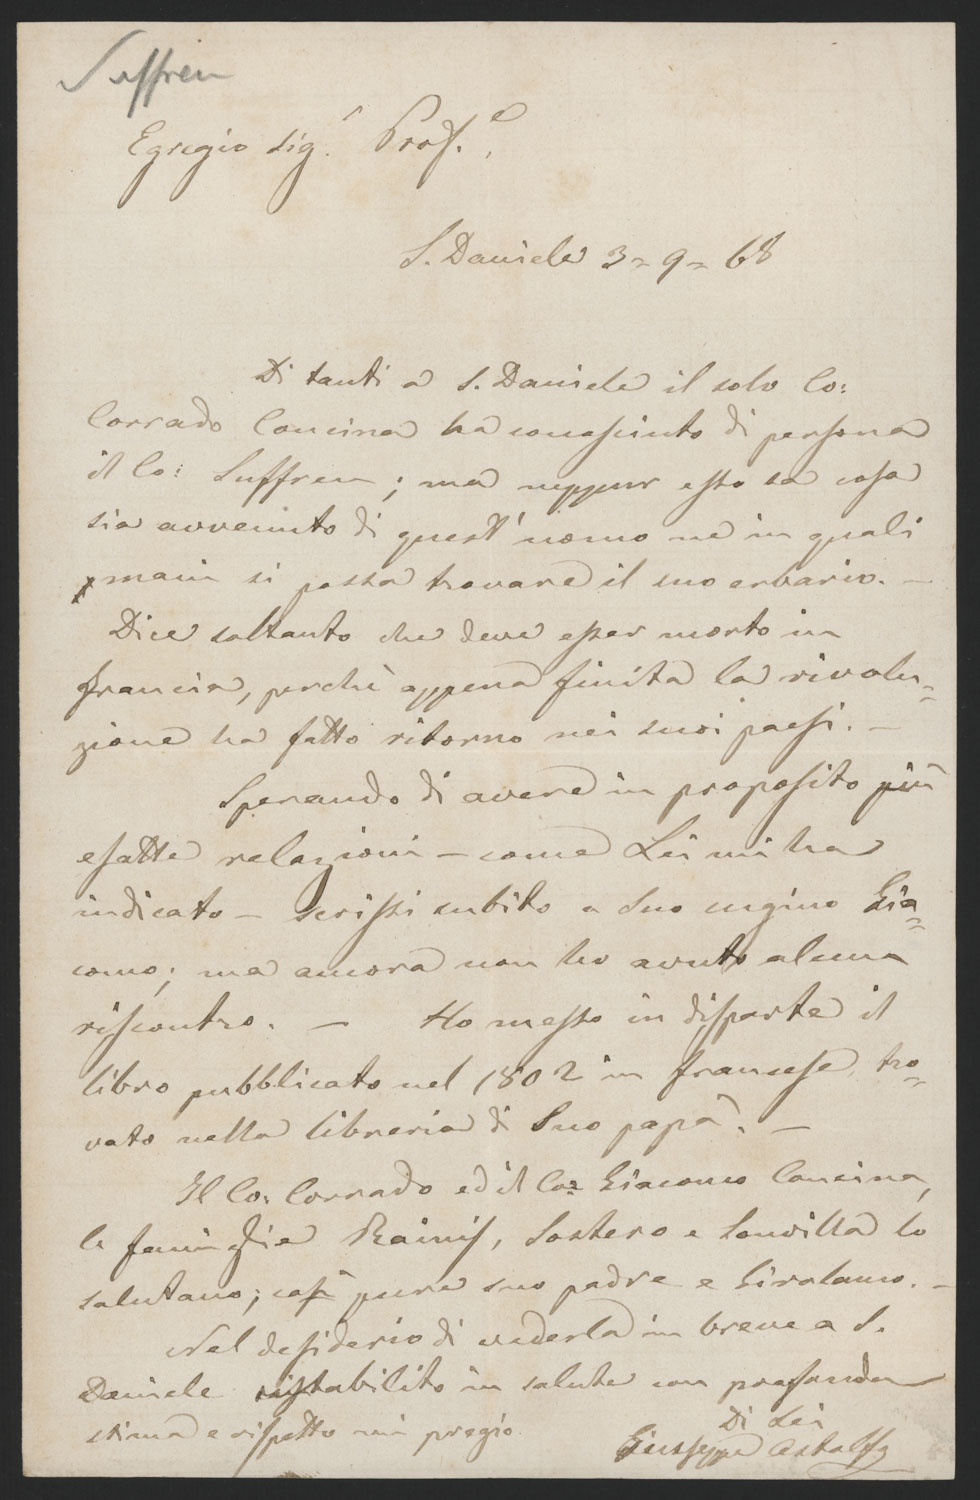 Suffren
Egregio Sig.r Prof.e,
S. Daniele 3=9=68
Di tanti a S. Daniele il solo Co:
Corrado Concina ha conosciuto di persona
il Co: Suffren; ma neppur esso sa cosa
sia avvenuto di quest'uomo nè in quali
mani si possa trovare il suo erbario. —
Dice soltanto che deve esser morto in
Francia, perchè appena finita la rivolu=
zione ha fatto ritorno nei suoi paesi. —
Sperando di avere in proposito più
esatte relazioni — come Lei mi ha
indicato — scrissi subito a Suo cugino Gia=
como; ma ancora non ho avuto alcun
riscontro. — Ho messo in disparte il
libro pubblicato nel 1802 in francese, tro=
vato nella libreria di Suo papà. —
Il Co: Corrado ed il Co: Giacomo Concina,
le famiglie Rainis, Sostero e Sonvilla lo
salutano; così pure suo padre e Girolamo. —
Nel desiderio di vederla in breve a S.
Daniele ristabilito in salute con profonda
stima e rispetto mi pregio
Di Lei
Giuseppe